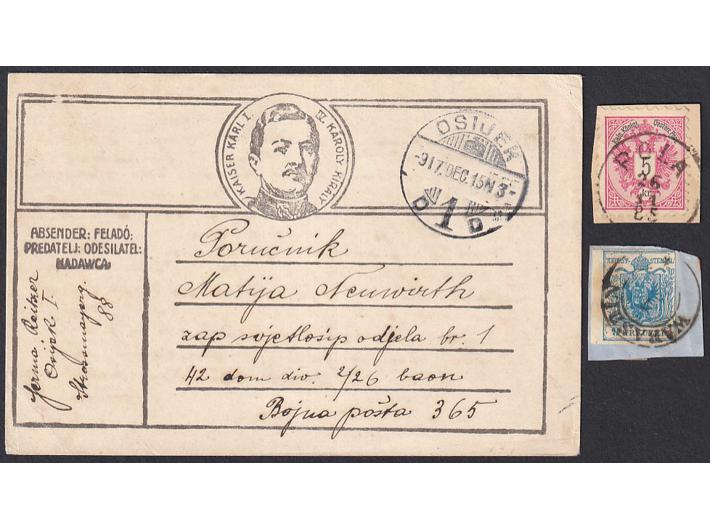 KAISER KARL I. IV. KÁROLY KIRÁLY
OSIJEK
-917.DEC.15N3-
1
D D
ABSENDER: FELADÓ:
PREDATELJ: ODESILATEL:
NADAWCA:
Reitzer
Osijek I
Strossmayerg.
88
Poručnik
Matija Neuwirth
zap svjetlosip odjela br. 1
42 dom div. 2/26 baon
Bojna pošta 365
POLA
5
kr.
KREUZER